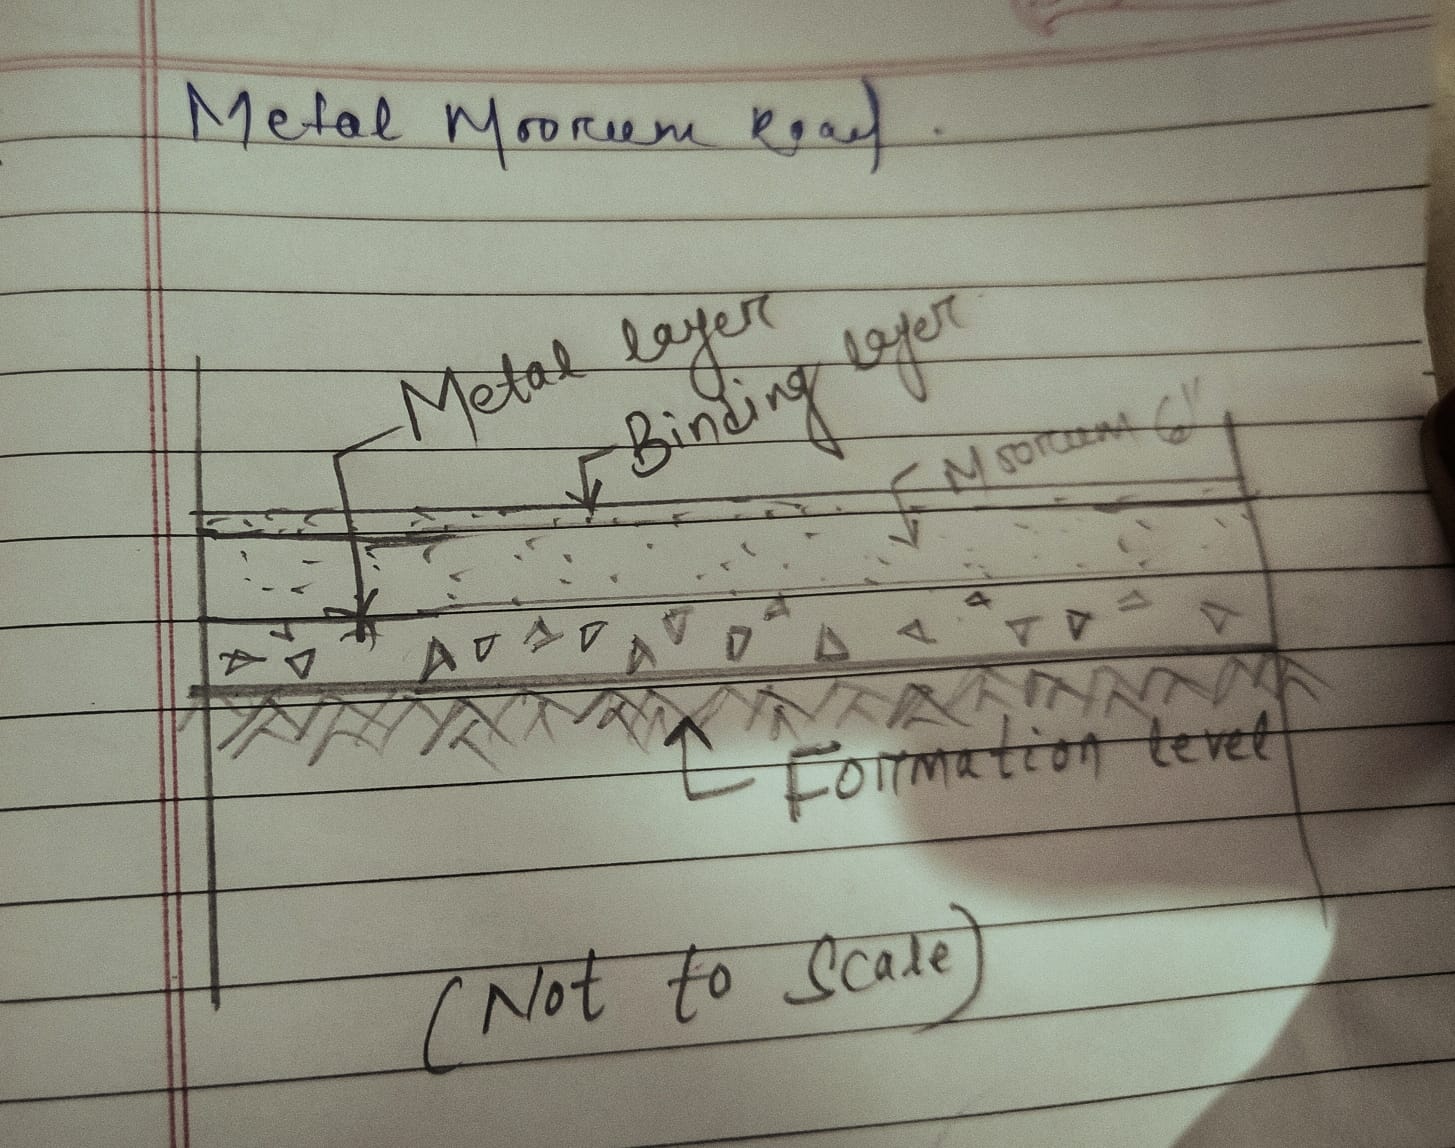 Metal Moorum Road.
Metal layer
Binding layer
Moorum 6"
Formation level
(Not to Scale)